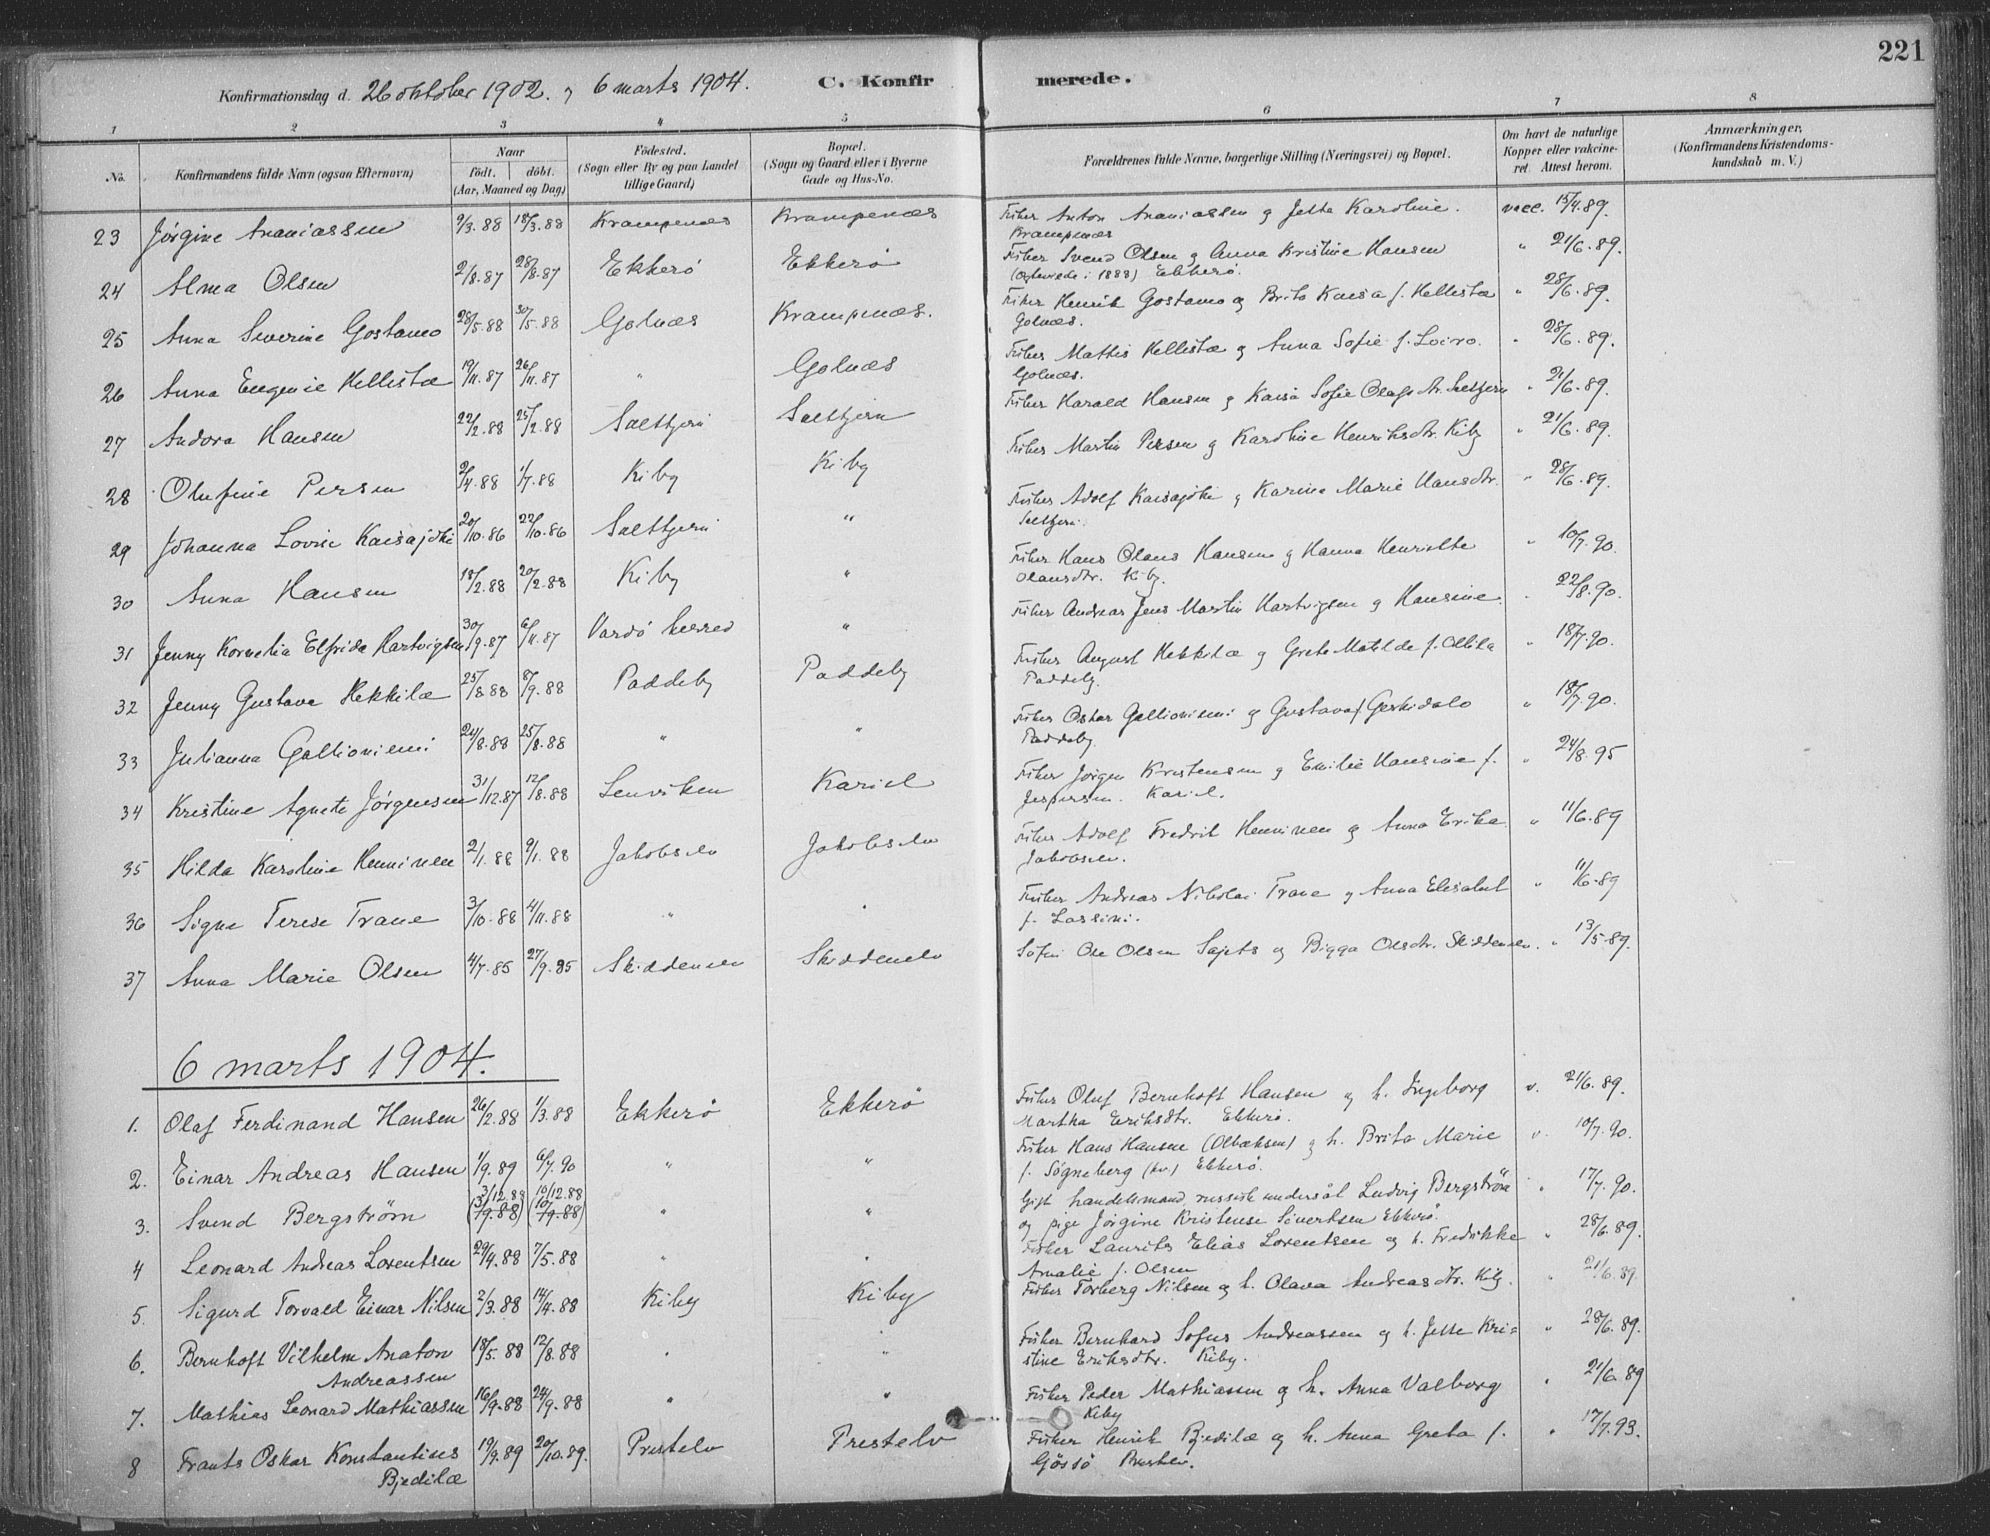 221
Konfirmationsdag d. 26 oktober 1902. og 6 marts 1904. C. Konfirmerede.
1 2 3 4 5 6 7 8
No. Konfirmandens fulde Navn (ogsaa Efternavn) Naar födt. döbt. (Aar, Maaned og Dag) Födested. (Sogn eller By og paa Landet tillige Gaard) Bopæl. (Sogn og Gaard eller i Byerne Gade og Hus-No. Forældrenes fulde Navne, borgerlige Stilling (Næringsvei) og Bopæl. Om havt de naturlige Kopper eller vakcineret. Attest herom. Anmærkninger, (Konfirmandens Kristendomskundskab m. V.)
23 Jörgine Ananiassen 9/3.88 18/3.88 Krampenæs Krampenæs Fisker Anton Ananiassen og Jette Karoline. vacc. 15/4.89.
Krampenæs
24 Alma Olsen 2/8.87 28/8.87 Ekkerö Ekkerö Fisker Svend Olsen og Anna Kristine Hansen " 21/6.89.
(Egteviede i 1888) Ekkerö.
25 Anna Severine Gostamo 28/5.88 30/5.88 Golnæs Krampenæs. Fisker Henrik Gostamo og Brita Kaisa f. Hellistæ " 28/6.89.
Golnæs.
26 Anna Eugenie Hellistæ 19/11.87 26/11.87 " Golnæs Fisker Mattis Hellistæ og Anna Sofie f. Loivo. " 28/6.89.
Golnæs.
27 Andora Hansen 22/2.88 25/2.88 Saltjern Saltjern Fisker Harald Hansen og Kaisa Sofie Olafsdtr. Saltjern " 21/6.89.
28 Olufine Persen 2/4.88 1/7.88 Kiby Kiby Fisker Martin Persen og Karoline Henriksdtr. Kiby " 21/6.89.
29 Johanna Lovise Kaisajoki 20/10.86 22/10.86 Saltjern " Fisker Adolf Kaisajoki og Karine Marie Hansdtr. " 28/6.89.
Saltjern.
30 Anna Hansen 18/2.88 20/2.88 Kiby " Fisker Hans Olaus Hansen og Hanna Henriette " 10/7.90.
Olausdtr. Kiby.
31 Jenny Kornelia Elfrida Hartvigsen 30/9.87 6/11.87 Vardö herred " Fisker Andreas Jens Martin Hartvigsen og Hansine. " 22/8.90.
32 Jenny Gustava Hekkilæ 25/8.88 8/9.88 Paddeby Paddeby Fisker August Hekkilæ og Greta Matilde f. Ollila " 18/7.90.
Paddeby.
33 Julianna Gallioniemi 24/8.88 25/8.88 " " Fisker Oskar Gallioniemi og Gustava f. Geskidalo " 18/7.90.
Paddeby
34 Kristine Agnete Jörgensen 31/12.87 12/8.88 Lenviken Kariel Fisker Jörgen Kristensen og Emilie Hansine f. " 24/8.95
Jespersen. Kariel.
35 Hilda Karoline Henninen 2/1.88 9/1.88 Jakobselv Jakobselv Fisker Adolf Fredrik Henninen og Anna Erika " 11/6.89
Jakobselv.
36 Signe Terese Trane 3/10.88 4/11.88 " " Fisker Andreas Nikolai Trane og Anna Elisabet " 11/6.89
f. Lassini.
37 Anna Marie Olsen 4/7.85 27/9.85 Skiddenelv Skiddenelv Söfin Ole Olsen Sajets og Bigga Olsdtr. Skiddenelv. " 13/5.89.
6 marts 1904.
1. Olaf Ferdinand Hansen 26/2.88 1/3.88 Ekkerö Ekkerö Fisker Oluf Bernhoft Hansen og h. Ingeborg v. 21/6.89.
Martha Eriksdtr. Ekkerö.
2. Einar Andreas Hansen 1/9.89 6/7.90 " " Fisker Hans Hansen (Olbæksen) og h. Brita Marie v. 10/7.90.
f. Sögneberg (kv.) Ekkerö.
3. Svend Bergström 3/12.88 (3/9.88) 10/12.88 (10/9.88) " " Gift handelsmand russisk undersåt Ludvig Bergström " 17/7.90.
og pige Jörgine Kristense Sivertsen Ekkerö.
4 Leonard Andreas Lorentsen 29/4.88 7/5.88 " " Fisker Laurits Elias Lorentsen og h. Fredrikke " 28/6.89.
Amalie f. Olsen
5. Sigurd Torvald Einar Nilsen 2/3.88 14/4.88 Kiby Kiby Fisker Torberg Nilsen og h. Olava Andreasdtr. Kiby. " 21/6.89.
6. Bernhoft Vilhelm Anaton Andreassen 18/5.88 12/8.88 " " Fisker Bernhard Sofus Andreassen og h. Jette Kri= " 28/6.89.
stine Eriksdtr. Kiby.
7. Mathias Leonard Mathiassen 16/9.88 24/9.88 " " Fisker Peder Mathiassen og h. Anna Valborg " 21/6.89
Kiby
8 Frants Oskar Konstantius Bjedilæ 19/9.89 20/10.89. Prestelv Prestelv Fisker Henrik Bjedilæ og h. Anna Greta f. " 17/7.93.
Gössö Prestelv.